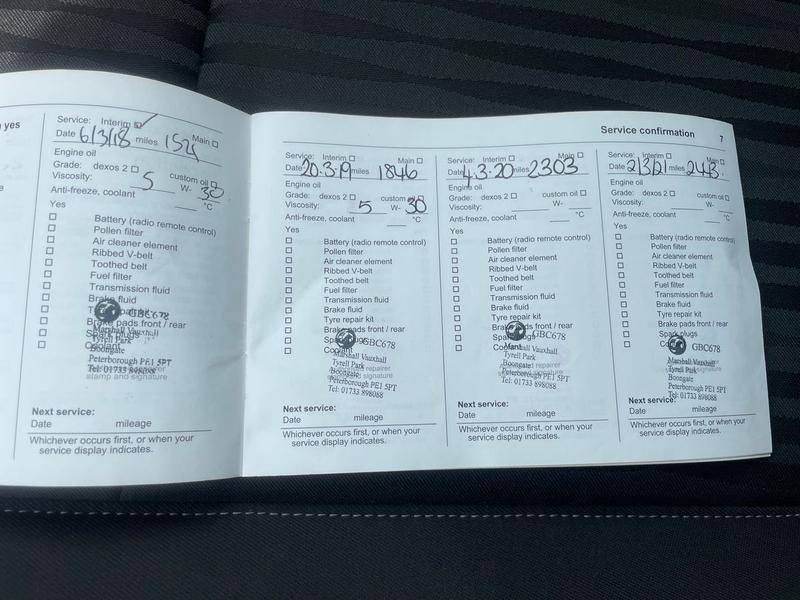 yes
Service: Interim
Main
Date 6/3/18 miles
Engine oil
Grade: dexos 2
custom oil
Viscosity: 5 W- 30
Anti-freeze, coolant °C
Yes
Battery (radio remote control)
Pollen filter
Air cleaner element
Ribbed V-belt
Toothed belt
Fuel filter
Transmission fluid
Brake fluid
GBC678
Brake pads front / rear
Marshall Vauxhall
Spark plugs
Tyrell Park
Coolant
Boongate
Peterborough PE1 5PT
Tel: 01733 898088
stamp and signature
Next service:
Date mileage
Whichever occurs first, or when your
service display indicates.
Service confirmation 7
Service: Interim Main
Date 20.3.19 miles 1846
Engine oil
Grade: dexos 2 custom oil
Viscosity: 5 W- 30
Anti-freeze, coolant °C
Yes
Battery (radio remote control)
Pollen filter
Air cleaner element
Ribbed V-belt
Toothed belt
Fuel filter
Transmission fluid
Brake fluid
Tyre repair kit
Brake pads front / rear
Spark plugs
GBC678
Coolant
Marshall Vauxhall
Tyrell Park
repairer
Boongate
signature
Peterborough PE1 5PT
Tel: 01733 898088
Next service:
Date mileage
Whichever occurs first, or when your
service display indicates.
Service: Interim Main
Date 4.3.20 miles 2303
Engine oil
Grade: dexos 2 custom oil
Viscosity: W-
Anti-freeze, coolant °C
Yes
Battery (radio remote control)
Pollen filter
Air cleaner element
Ribbed V-belt
Toothed belt
Fuel filter
Transmission fluid
Brake fluid
Tyre repair kit
Brake pads front / rear
Spark plugs
GBC678
Coolant
Marshall Vauxhall
Tyrell Park
repairer
Boongate
signature
Peterborough PE1 5PT
Tel: 01733 898088
Next service:
Date mileage
Whichever occurs first, or when your
service display indicates.
Service: Interim Main
Date miles
Engine oil
Grade: dexos 2 custom oil
Viscosity: W-
Anti-freeze, coolant °C
Yes
Battery (radio remote control)
Pollen filter
Air cleaner element
Ribbed V-belt
Toothed belt
Fuel filter
Transmission fluid
Brake fluid
Tyre repair kit
Brake pads front / rear
Spark plugs
GBC678
Coolant
Marshall Vauxhall
Tyrell Park
repairer
Boongate
signature
Peterborough PE1 5PT
Tel: 01733 898088
Next service:
Date mileage
Whichever occurs first, or when your
service display indicates.